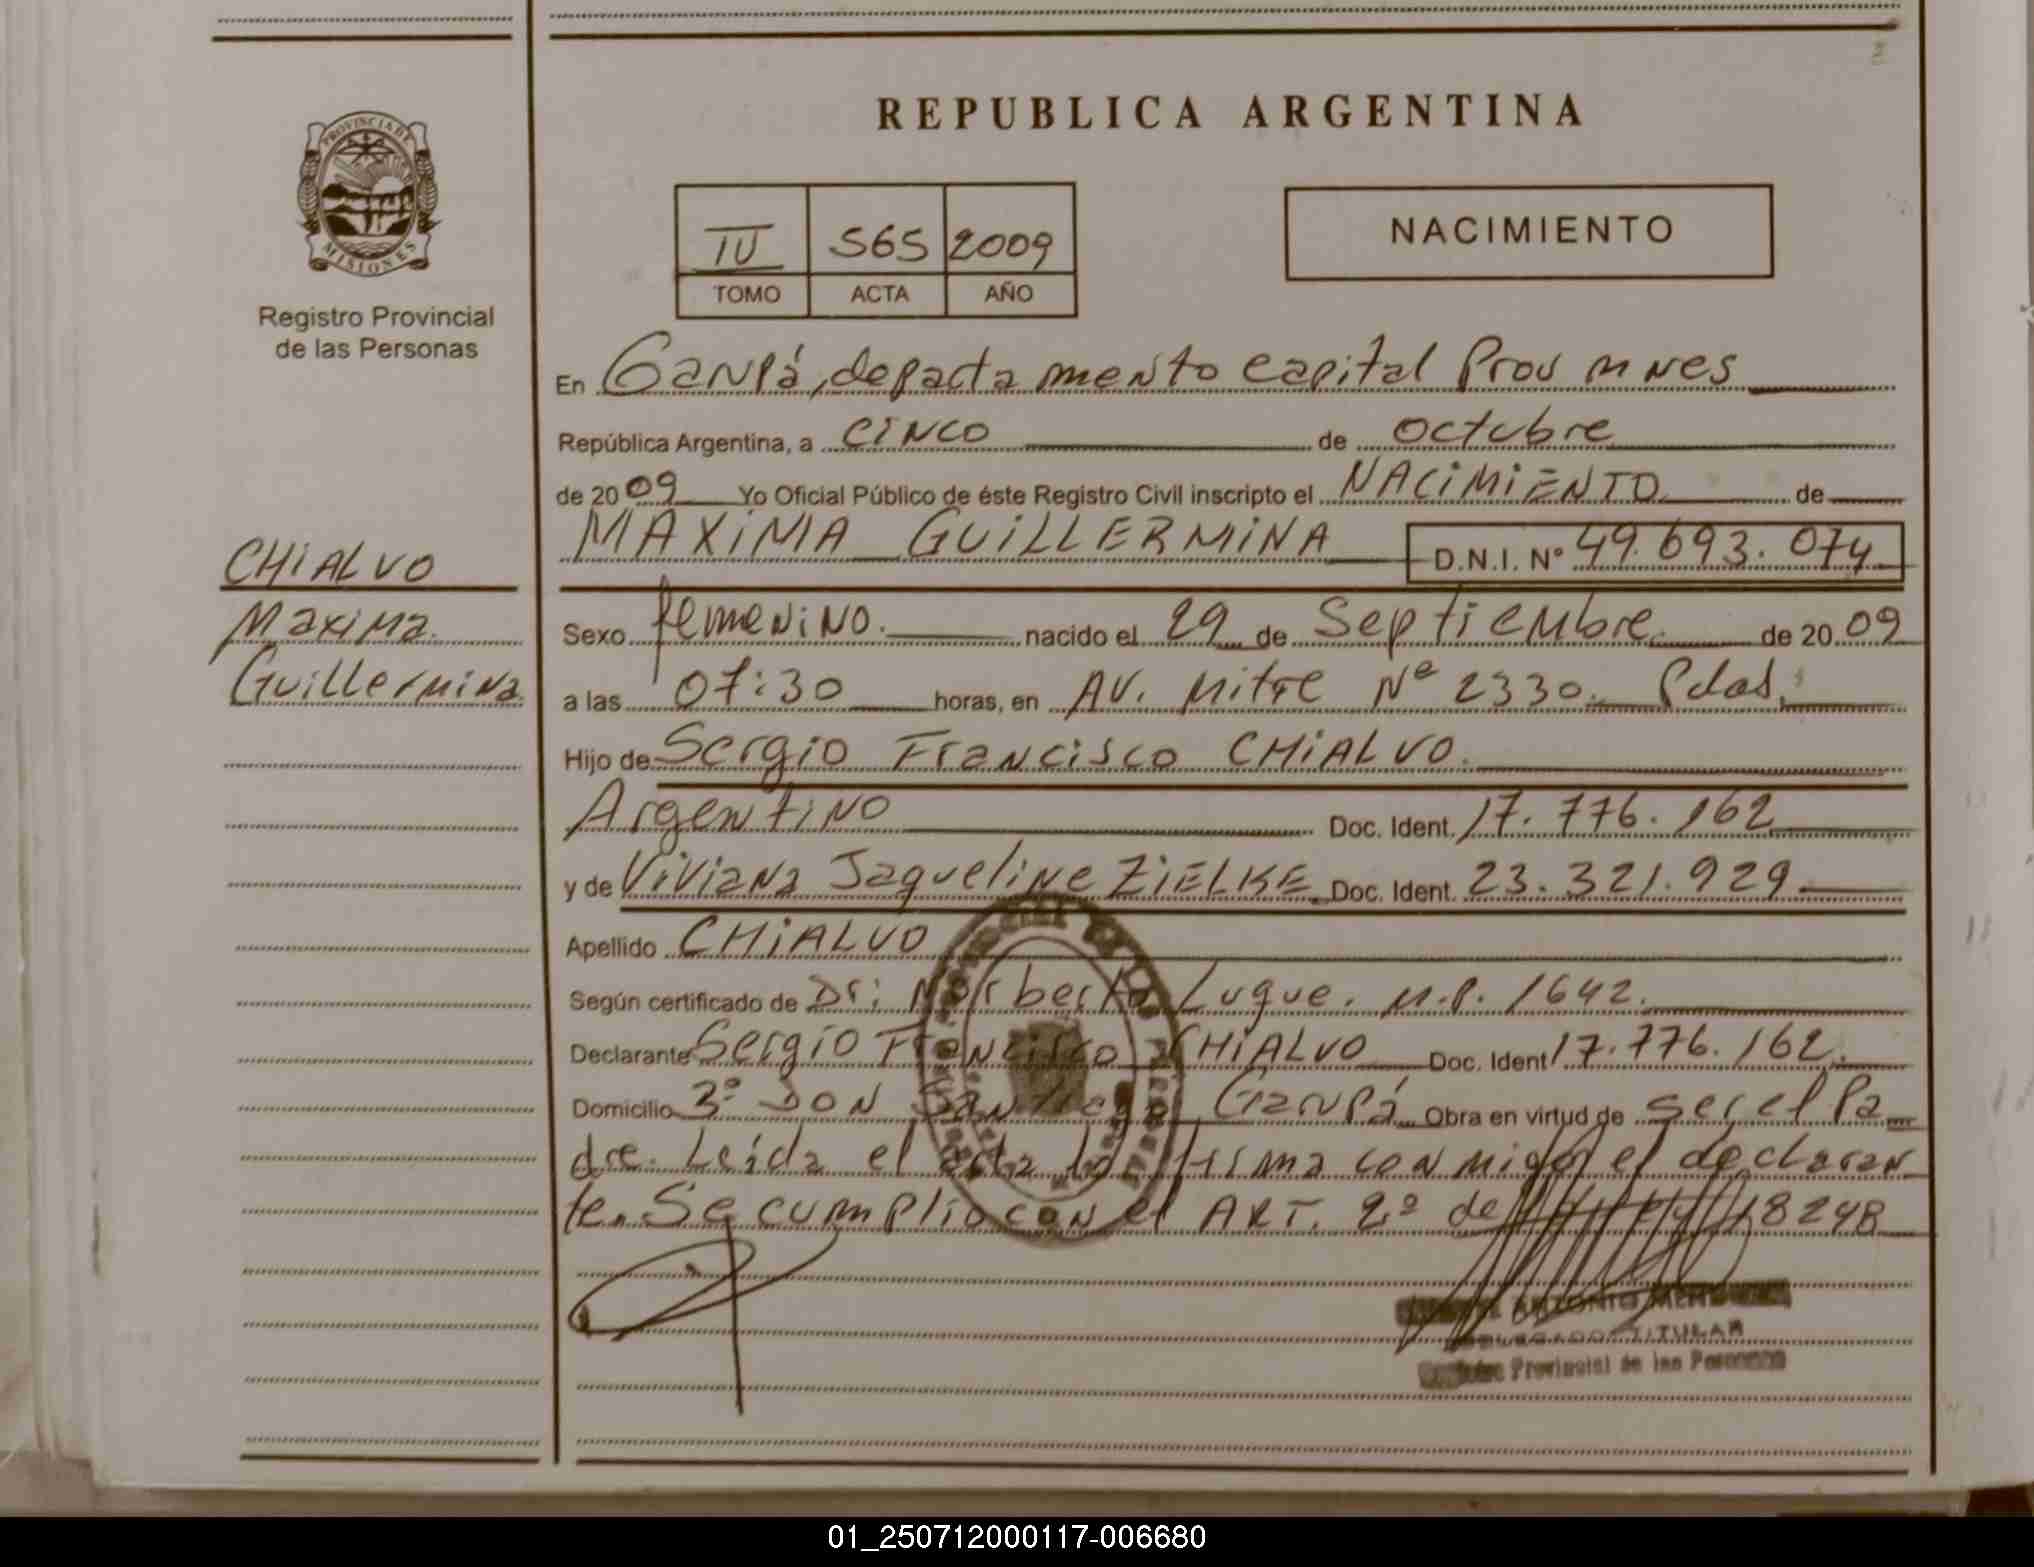 REPUBLICA ARGENTINA
PROVINCIA DE
MISIONES
Registro Provincial
de las Personas
IV 565 2009
TOMO ACTA AÑO
NACIMIENTO
En Garupá, departamento capital Prov Mnes
República Argentina, a cinco de octubre
de 2009 Yo Oficial Público de éste Registro Civil inscripto el NACIMIENTO de
MAXIMA GUILLERMINA D.N.I. Nº 49.693.074
CHIALVO
Maxima
Guillermina
Sexo femenino. nacido el 29 de Septiembre de 2009
a las 07:30 horas, en AV. Mitre Nº 2330. Pdas.
Hijo de Sergio Francisco CHIALVO.
Argentino Doc. Ident. 17.776.162
y de Viviana Jaqueline ZIELKE. Doc. Ident. 23.321.929
Apellido CHIALVO
Según certificado de Dr: Norberto Luque. M.P. 1642.
Declarante Sergio Francisco CHIALVO Doc. Ident 17.776.162.
Domicilio 3º DON Santiago Garupá Obra en virtud de ser el Pa
dre. Leída el acta la firma conmigo el declaran
te. Se cumplio con el ART. 2º de 18248
ANTONIO
DELEGADO TITULAR
Provincial de las Personas
01_250712000117-006680